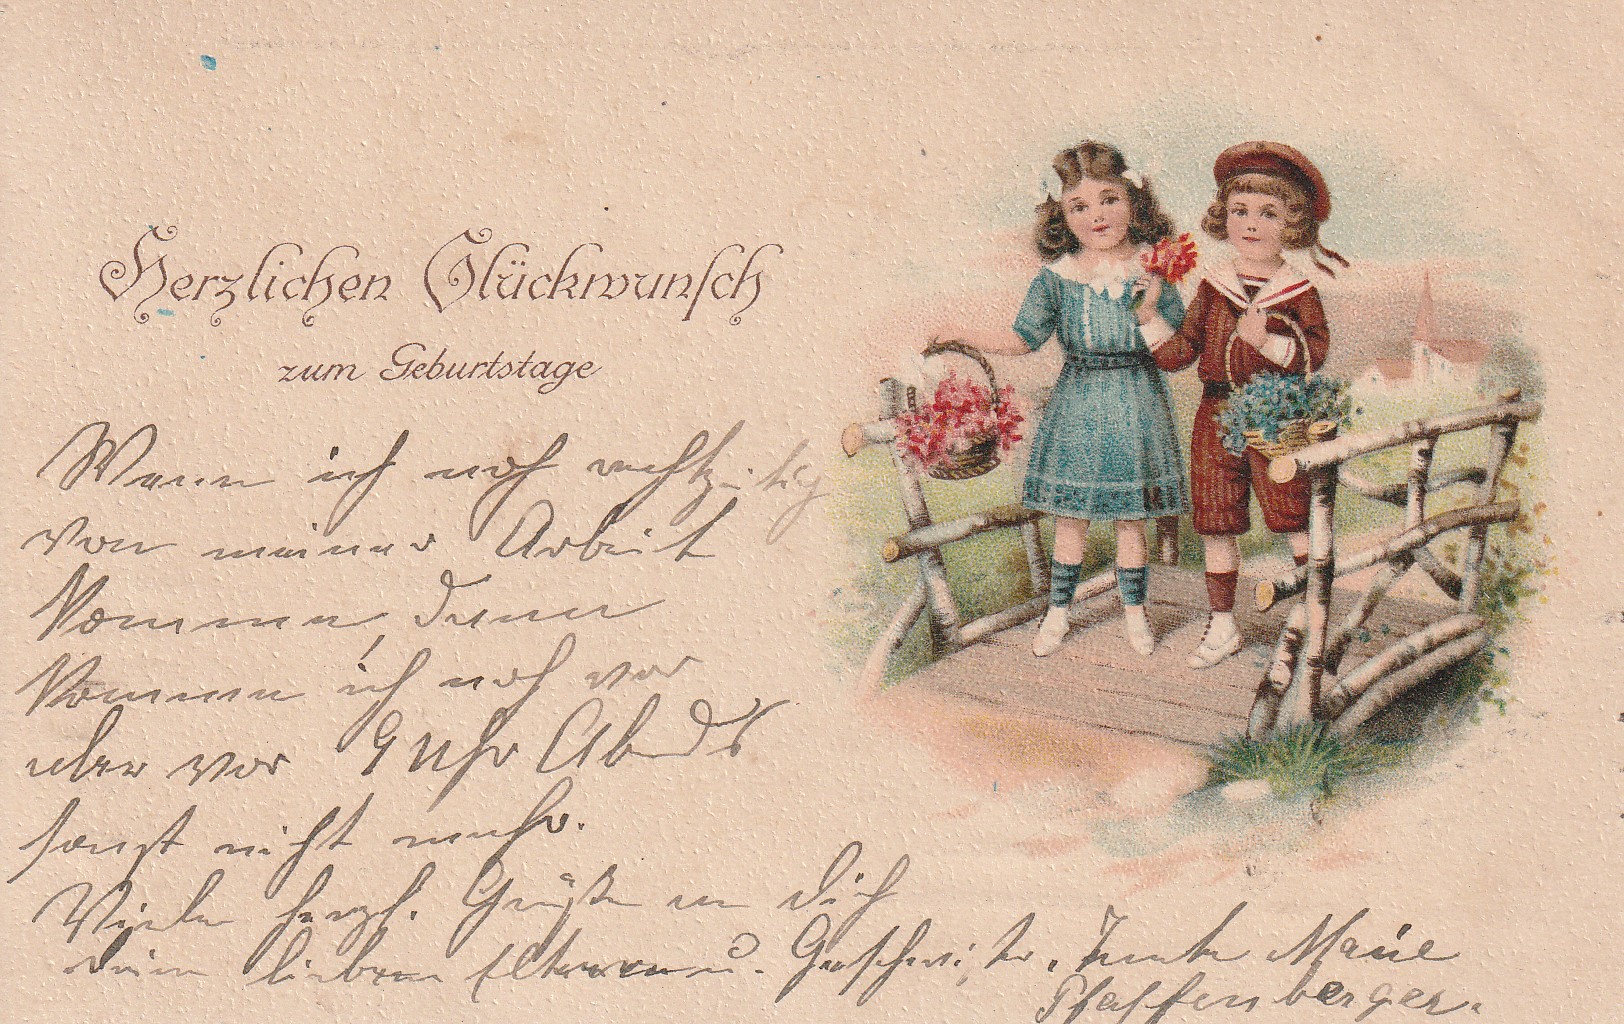 Herzlichen Glückwunsch
zum Geburtstage
Wenn ich noch rechtzeitig
von meiner Arbeit
komme, dann
komme ich noch vor
aber vor 9 Uhr Abends
sonst nicht mehr.
Viele herzl. Grüße an dich
deine lieben Eltern u. Geschwister, Tante Marie
Pfaffenberger.